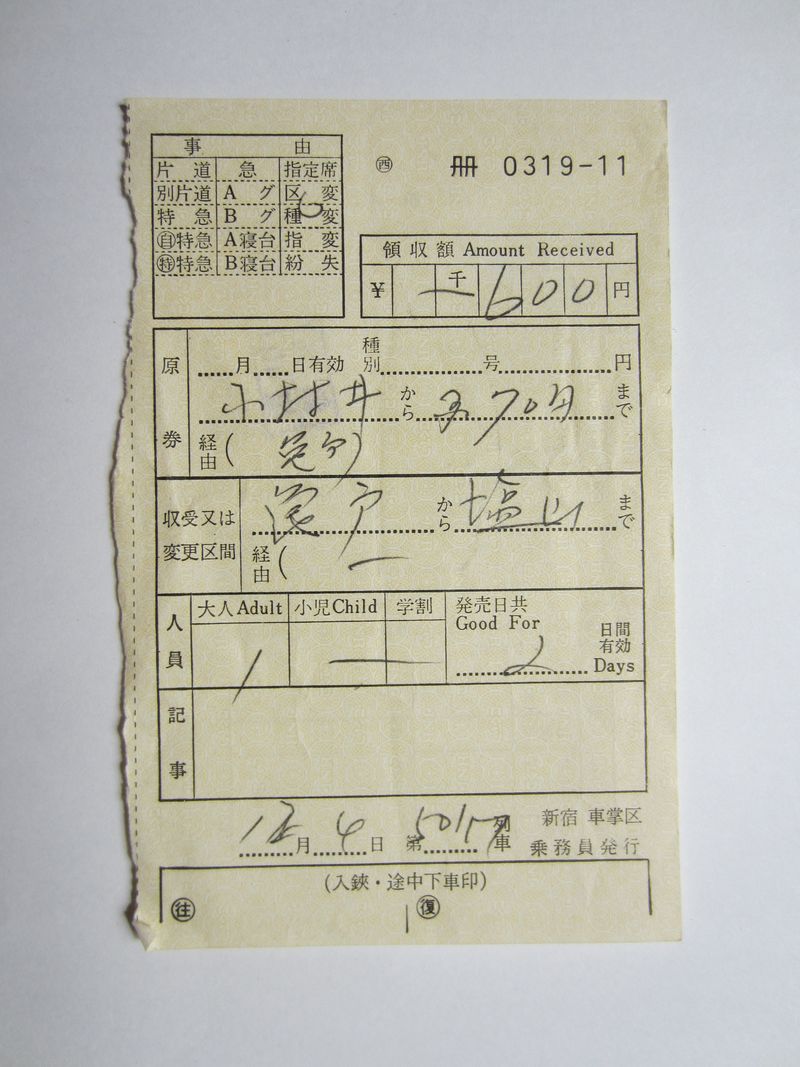 事由
㊄ 冊 0319-11
片道 急 指定席
別片道 Aグ 区変
特急 Bグ 種変
㊀特急 A寝台 指変
㊕特急 B寝台 紛失
領収額 Amount Received
¥ 千 600 円
原券
月 日有効 種別 号 円
小村井 から 370円 まで
経由 (亀戸)
収受又は変更区間
亀戸 から 塩山 まで
経由 ( ー
人員
大人Adult 小児Child 学割
1 ー
発売日共 Good For 2 日間有効 Days
記事
12月 4日 第 5017 列車
新宿 車掌区
乗務員発行
(入鋏・途中下車印)
往 復